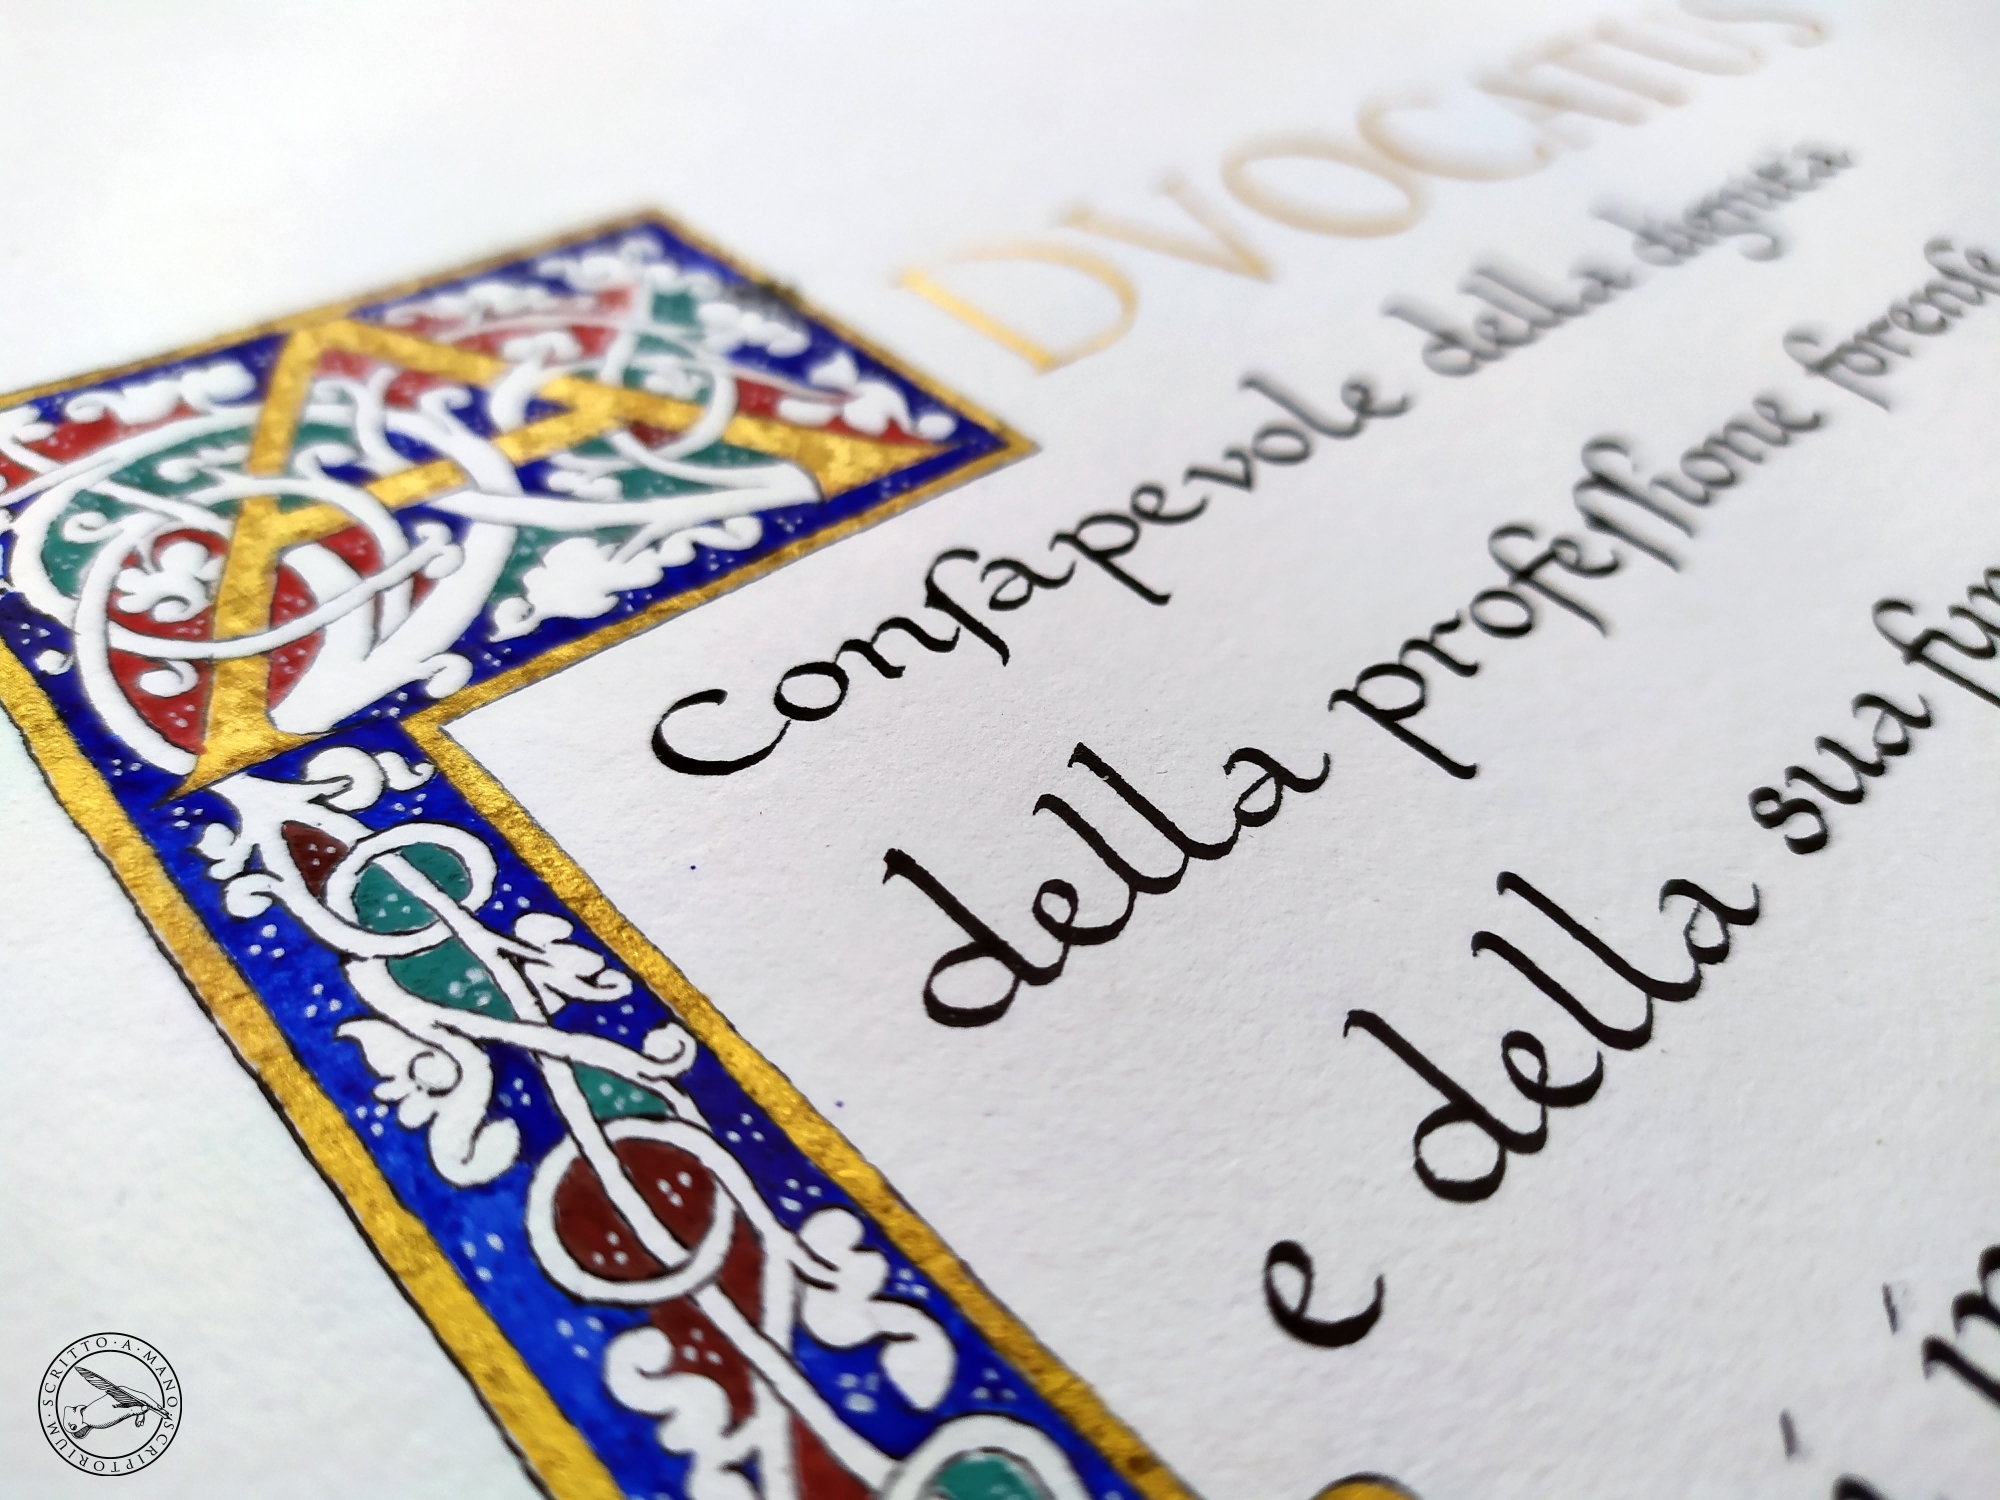 ADVOCATUS
Conſapevole della dignità
della profeſſione forenſe
e della sua fun
in
SCRIPTORIUM·SCRITTO·A·MANO·